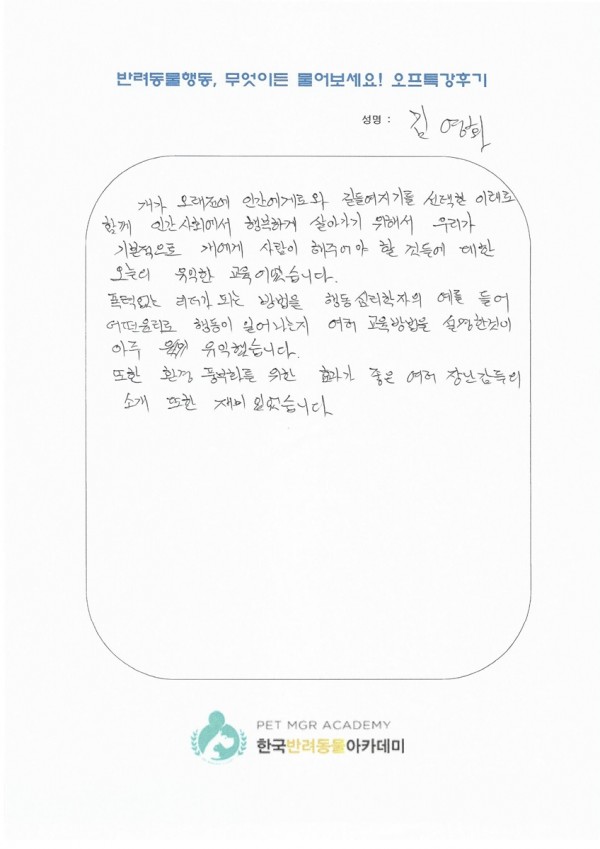 반려동물행동, 무엇이든 물어보세요! 오프특강후기
성명 : 김영화
개가 오래전에 인간에게로와 길들여지기를 선택한 이래로
함께 인간사회에서 행복하게 살아가기 위해서 우리가
기본적으로 개에게 사람이 해주어야 할 것들에 대한
오늘의 유익한 교육이었습니다.
폭력없는 리더가 되는 방법을 행동심리학자의 예를 들어
어떤원리로 행동이 일어나는지 여러 교육방법을 설명한것이
아주 유익했습니다.
또한 환경 풍부화를 위한 효과가 좋은 여러 장난감들의
소개 또한 재미있었습니다
PET MGR ACADEMY
한국반려동물아카데미